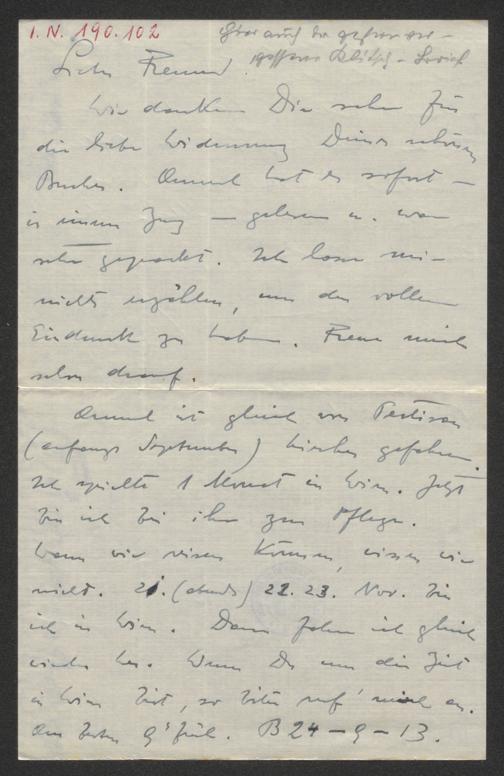 I.N. 190.102
Lieber Freund!
Wir danken Dir sehr für
die liebe Widmung Deines schönen
Buches. hat es sofort –
in einem Zug – gelesen u. war
sehr gepackt. Ich lasse mir
nichts erzählen, um den vollen
Eindruck zu haben. Freue mich
schon drauf.
ist gleich
(anfangs September) hierher gefahren.
Ich spielte 1 Monat in Wien. Jetzt
bin ich bei ihm zur Pflege.
Wann wir reisen können, wissen wir
nicht. 21. (abends) 22. 23. Nov. bin
ich in Wien. Dann fahre ich gleich
wieder her. Wenn Du um die Zeit
in Wien bist, so bitte ruf' mich an.
Am besten früh. B 24-9-13.